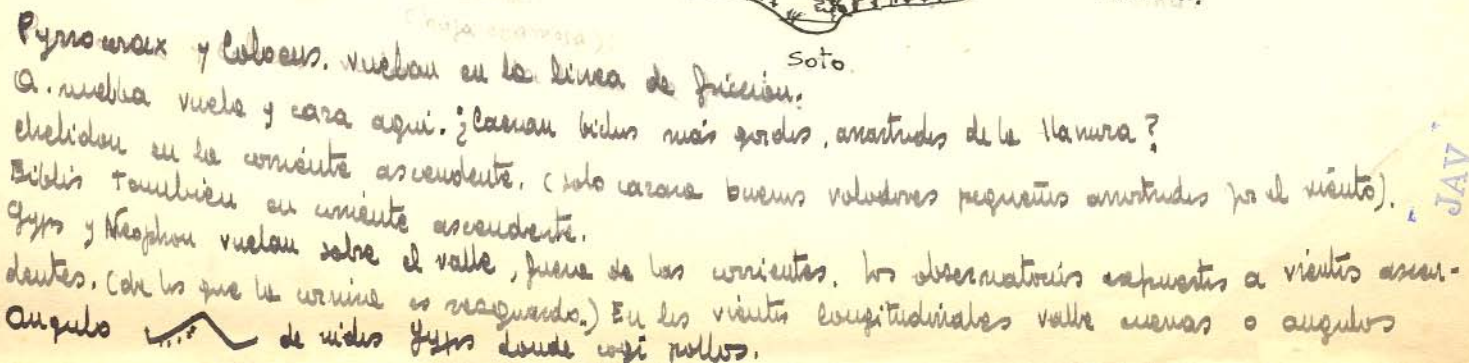 Soto
Pyrrocorax y Coloeus. vuelan en la linea de fricción.
A. melba vuela y caza aqui. ¿Cazan bichos más gordos, arrastrados de la llanura?
chelidon en la corriente ascendente. (solo cazara buenos voladores pequeños arrastrados por el viento).
Biblis Tambien en corriente ascendente.
Gyps y Neophon vuelan sobre el valle, fuera de las corrientes. Los observatorios expuestos a vientos ascen-
dentes. (de los que la cornisa es resguardo.) En los vientos longitudinales valle cuevas o angulos
Angulo de nidos Gyps donde cogí pollos.
JAV